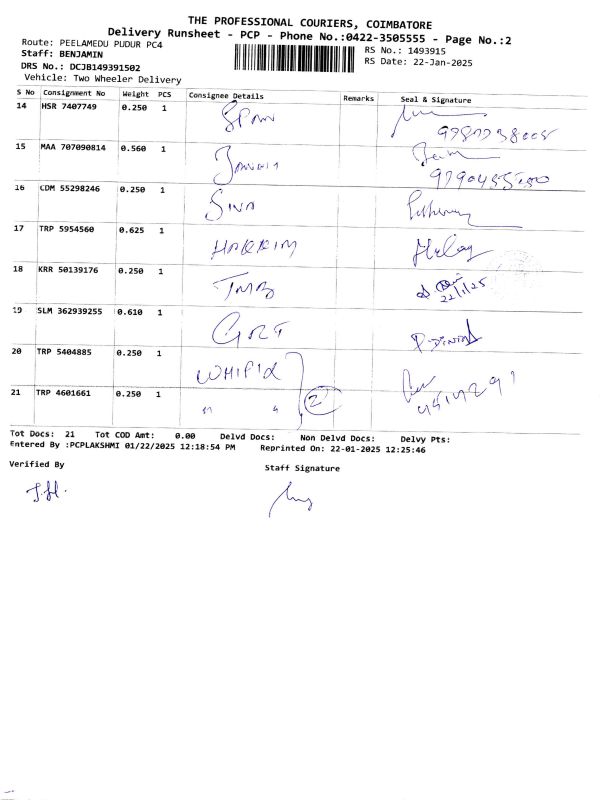 THE PROFESSIONAL COURIERS, COIMBATORE
Delivery Runsheet - PCP - Phone No.:0422-3505555 - Page No.:2
Route: PEELAMEDU PUDUR PC4
RS No.: 1493915
Staff: BENJAMIN
RS Date: 22-Jan-2025
DRS No.: DCJB149391502
Vehicle: Two Wheeler Delivery
S No Consignment No Weight PCS Consignee Details Remarks Seal & Signature
14 HSR 7407749 0.250 1
15 MAA 707090814 0.560 1
16 CDM 55298246 0.250 1
17 TRP 5954560 0.625 1 HAKKIM
18 KRR 50139176 0.250 1 TMB 22/1/25
19 SLM 362939255 0.610 1 GRT
20 TRP 5404885 0.250 1
21 TRP 4601661 0.250 1 " " 2
Tot Docs: 21 Tot COD Amt: 0.00 Delvd Docs: Non Delvd Docs: Delvy Pts:
Entered By :PCPLAKSHMI 01/22/2025 12:18:54 PM Reprinted On: 22-01-2025 12:25:46
Verified By Staff Signature